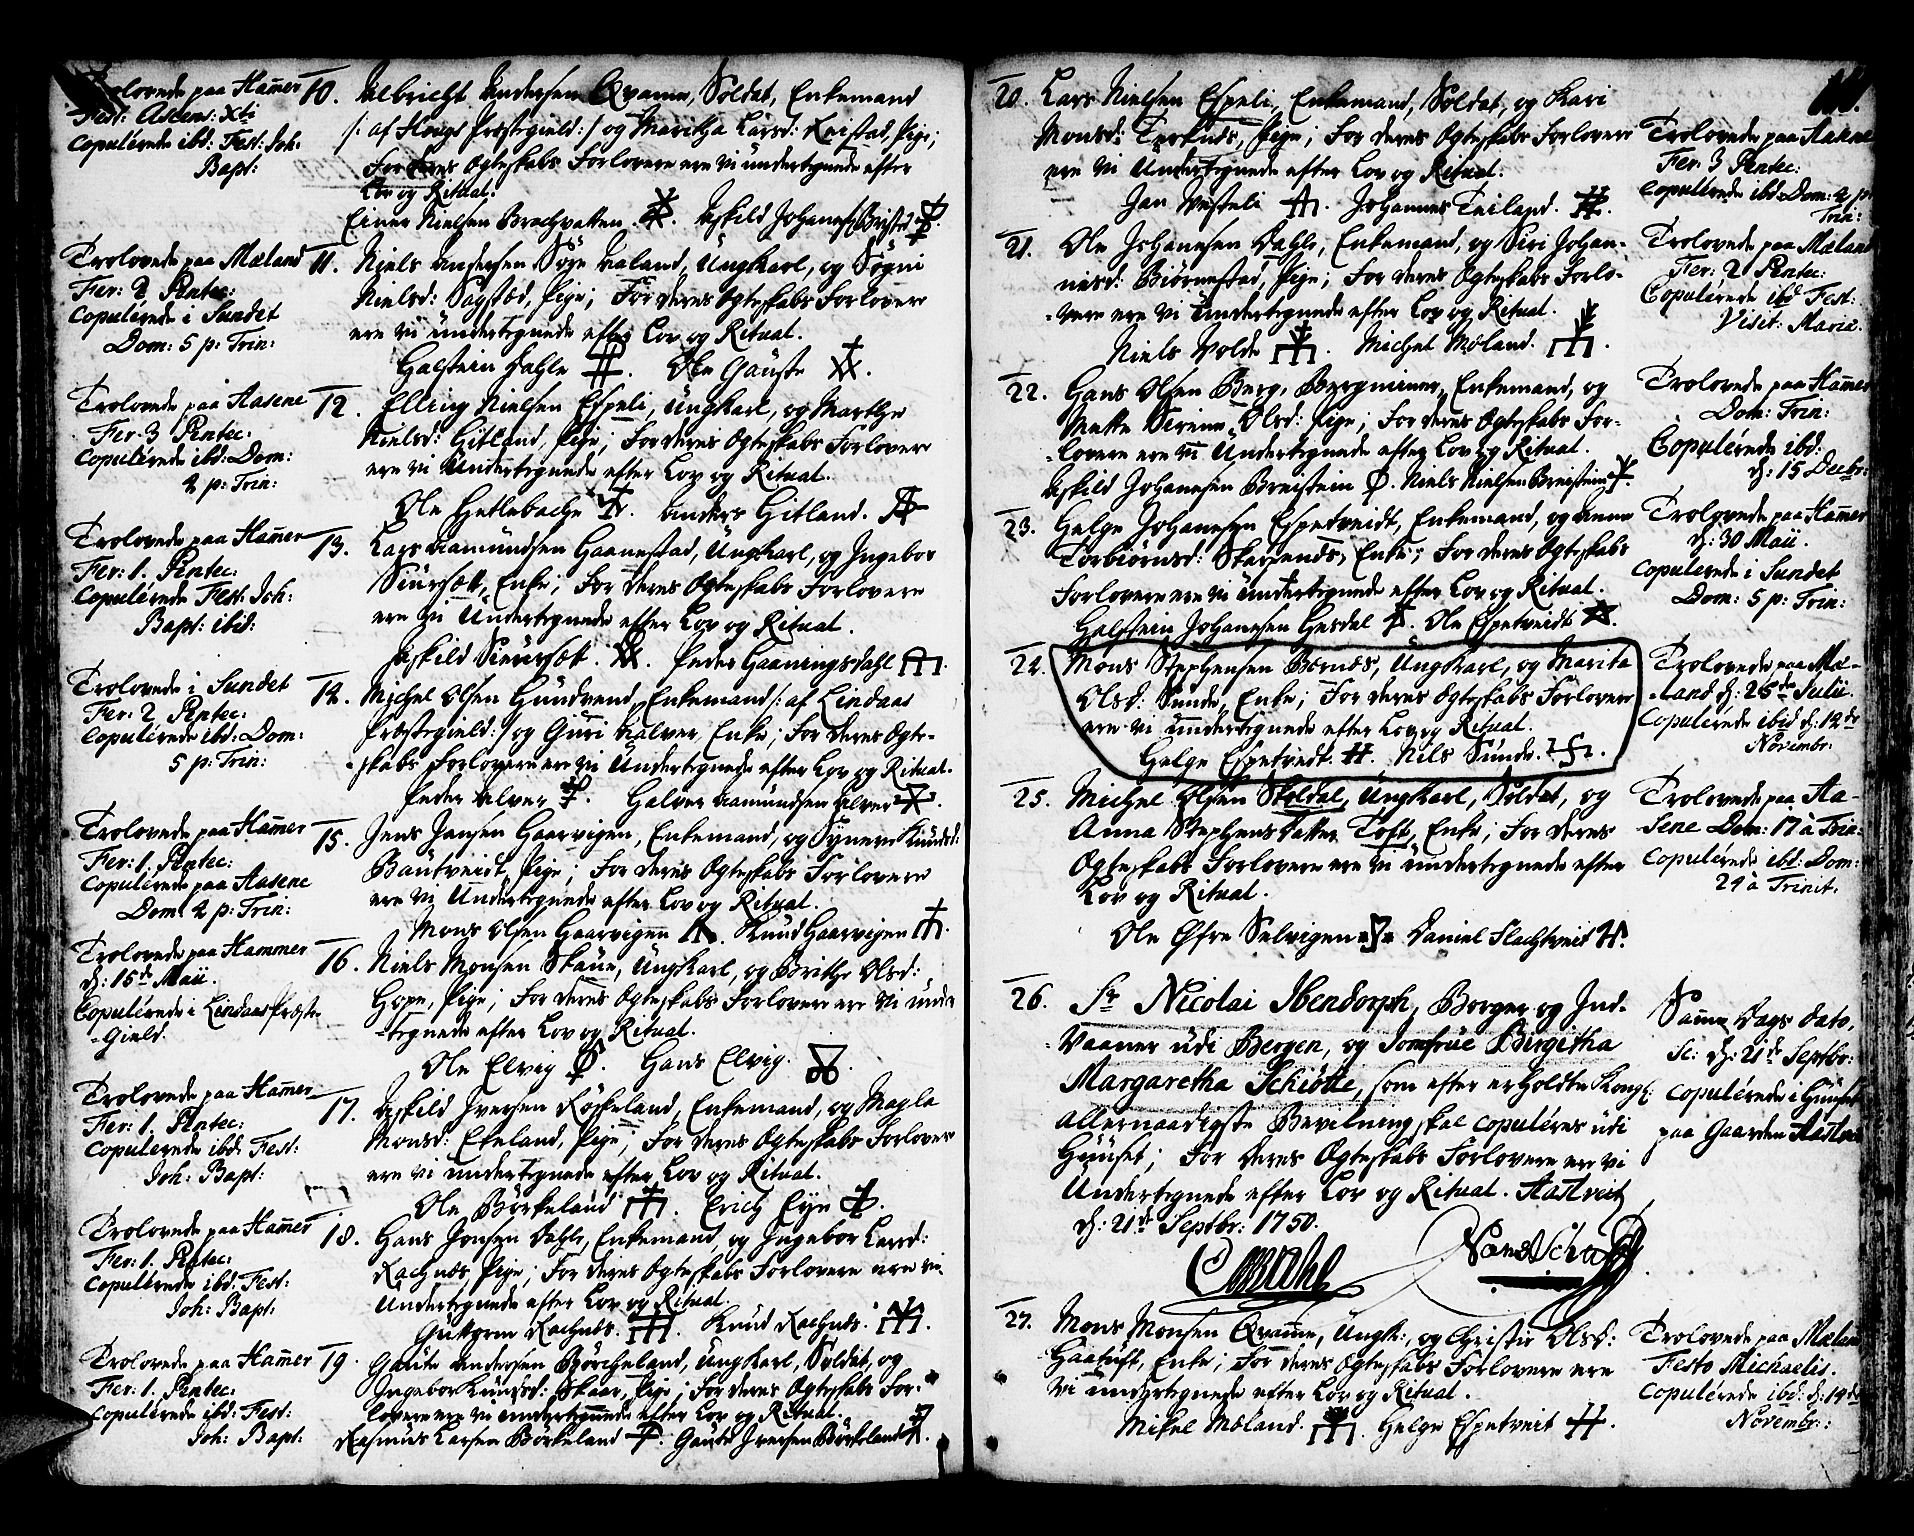 Trolovede paa Ham̄er
Fest: Ascens: Xti
copulerede ibd: Fest: Joh:
Bapt:
10. Albricht Andersen Qvamme, Soldat, Enkemand
/: af Hougs Præstegield :/ og Maritha Larsd: Reistad, Pige;
For deres Ægteskabs Forlovere ere vi undertegnede efter
Lov og Ritual.
Einer Nielsen Brechvatten. Askild Johanesen Breste
Trolovede paa Mæland
Fer: 2 Pentec:
Copulerede i Sundet
Dom: 5 p: Trin:
11. Niels Andersen Søge Aaland, Ungkarl, og Søgni
Nielsd: Sagstad, Pige; For deres Ægteskabs Forlovere
ere vi undertegnede efter Lov og Ritual.
Halstein Dahle. Ole Gauste
Trolovede paa Aasene
Fer: 3 Pentec:
Copulerede ibd: Dom:
2 p: Trin:
12. Elling Nielsen Espeli, Ungkarl, og Marthe
Nielsd: Hitland, Pige; For deres Ægteskabs Forlovere
ere vi Undertegnede efter Lov og Ritual.
Ole Hetlebache. Anders Hitland.
Trolovede paa Ham̄er
Fer: 1. Pentec:
Copulerede Fest: Joh:
Bapt: ibid:
13. Lars Aamundsen Haanestad, Ungkarl, og Ingebor
Siursætt, Enke; For deres Ægteskabs Forlovere
ere vi Undertegnede efter Lov og Ritual.
Askild Siursætt. Peder Haaningsdahl
Trolovede i Sundet
Fer: 2 Pentec:
Copulerede ibd: Dom:
5 p: Trin:
14. Michel Olsen Hundvend, Enkemand /: af Lindaas
Præstegield :/ og Guri Alver, Enke; For deres Ægte-
skabs Forlovere ere vi Undertegnede efter Lov og Ritual.
Peder Alver. Halver Aamundsen Alver
Trolovede paa Ham̄er
Fer: 1. Pentec:
Copulerede paa Aasene
Dom: 2 p: Trin:
15. Jens Jansen Haarvigen, Enkemand, og Synneve Knudsd:
Bautveidt, Pige; For deres Ægteskabs Forlovere
ere vi Undertegnede efter Lov og Ritual.
Mons Olsen Haarvigen. Knud Haarvigen
Trolovede paa Hammer
d: 15de Maii.
Copulerede i Lindaas Præste-
-Gield.
16. Niels Monsen Skaue, Ungkarl, og Brithe Olsd:
Hope, Pige; For deres Ægteskabs Forlovere ere vi unde
-tegnede efter Lov og Ritual.
Ole Elvig. Hans Elvig.
Trolovede paa Ham̄er
Fer: 1. Pentec:
copulerede ibd: Fest:
Joh: Bapt:
17. Askild Iversen Røskeland, Enkemand, og Magla
Monsd: Eknland, Pige; For deres Ægteskabs Forlovere
ere vi undertegnede efter Lov og Ritual.
Ole Børkeland. Erich Eyn
Trolovede paa Ham̄er
Fer: 1. Pentec:
copulerede ibd: Fest:
Joh: Bapt:
18. Hans Jonsen Dahle, Enkemand, og Ingebor Larsd:
Rachnæs, Pige; For deres Ægteskabs Forlovere ere vi
Undertegnede efter Lov og Ritual.
Guttorm Rachnæs. Knud Rachnæs.
Trolovede paa Ham̄er
Fer: 1. Pentec:
copulerede ibd: Fest:
Joh: Bapt:
19. Gaute Andersen Børcheland, Ungkarl, Soldat, og
Ingebor Knudsd: Skaar, Pige; For deres Ægteskabs For-
lovere ere vi undertegnede efter Lov og Ritual.
Rasmus Larsen Børkeland. Gaute Iversen Børkeland
20. Lars Nielsen Espeli, Enkemand, Soldat, og Kari
Monsd: Terknæs, Pige; For deres Ægteskabs Forlovere
ere vi Undertegnede efter Lov og Ritual.
Jan Vesteli. Johannes Teiland.
Trolovede paa Aasene
Fer: 3 Pentec:
Copulerede ibd: Dom: 2 p:
Trin:
21. Ole Johanesen Dahle, Enkemand, og Siri Johan-
nesd: Biørnestad, Pige; For deres Ægteskabs Forlo-
-vere ere vi Undertegnede efter Lov og Ritual.
Niels Volde. Michel Mæland.
Trolovede paa Mæland
Fer: 2 Pentec:
Copulerede ibd: Fest:
Visit: Mariæ.
22. Hans Olsen Berg, Bergmeier, Enkemand, og
Mette Sirene, Olsd: Pige; For deres Ægteskabs For-
-lovere ere vi Undertegnede efter Lov og Ritual.
Askild Johanesen Breistein. Niels Nielsen Breistein
Trolovede paa Ham̄er
Dom: Trin:
Copulerede ibd:
d: 15 Decbr:
23. Helge Johanesen Espetveidt, Enkemand, og Anne
Torbiørnsd: Skarpenes, Enke; For deres Ægteskabs
Forlovere ere vi undertegnede efter Lov og Ritual.
Halstein Johanesen Hesdal. Ole Espetveidt
Trolovede paa Ham̄er
d: 30 Maii.
copulerede i Sundet
Dom: 5 p: Trin:
24. Mons Stephensen Bernæs, Ungkarl, og Marita
Olsd: Sunde, Enke; For deres Ægteskabs Forlovere
ere vi undertegnede efter Lov og Ritual.
Helge Espetvedt. Nils Sunde.
Trolovede paa Mæ-
-land d: 26de Julii.
Copulerede ibid d: 12de
Novembr:
25. Michel Olsen Skoldal, Ungkarl, Soldat, og
Anna Stephens Datter Toft, Enke; For deres
Ægteskabs Forlovere ere vi undertegnede efter
Lov og Ritual.
Ole Øfre Selvigen. Daniel Flachtveit
Trolovede paa Aa-
sene Dom: 17 à Trin:
Copulerede ibd: Dom:
24 à Trinit.
26. Sr Nicolai Ibendorph, Borger og Ind-
-Vaaner udi Bergen, og Jomfrue Birgitha
Margaretha Schiøtte, som efter erholdte Kongl:
allernaadigste Bevilning skal copuleres udi
Huuset; For deres Ægteskabs Forlovere ere vi
Undertegnede efter Lov og Ritual. Aastveit
d: 21de Septbr: 1750.
Samme Dags dato,
Sc: d: 21de Septbr:
copulerede i Huuset
paa Gaarden Aastveit
27. Mons Monsen Qvamme, Ungk:, og Christie Olsd:
Haatuft, Enke; For deres Ægteskabs Forlovere ere
vi undertegnede efter Lov og Ritual.
Mikel Mæland. Helge Espetveit
Trolovede paa Mæland
Festo Michaelis.
Copulerede ibd: d: 19de
Novembr: